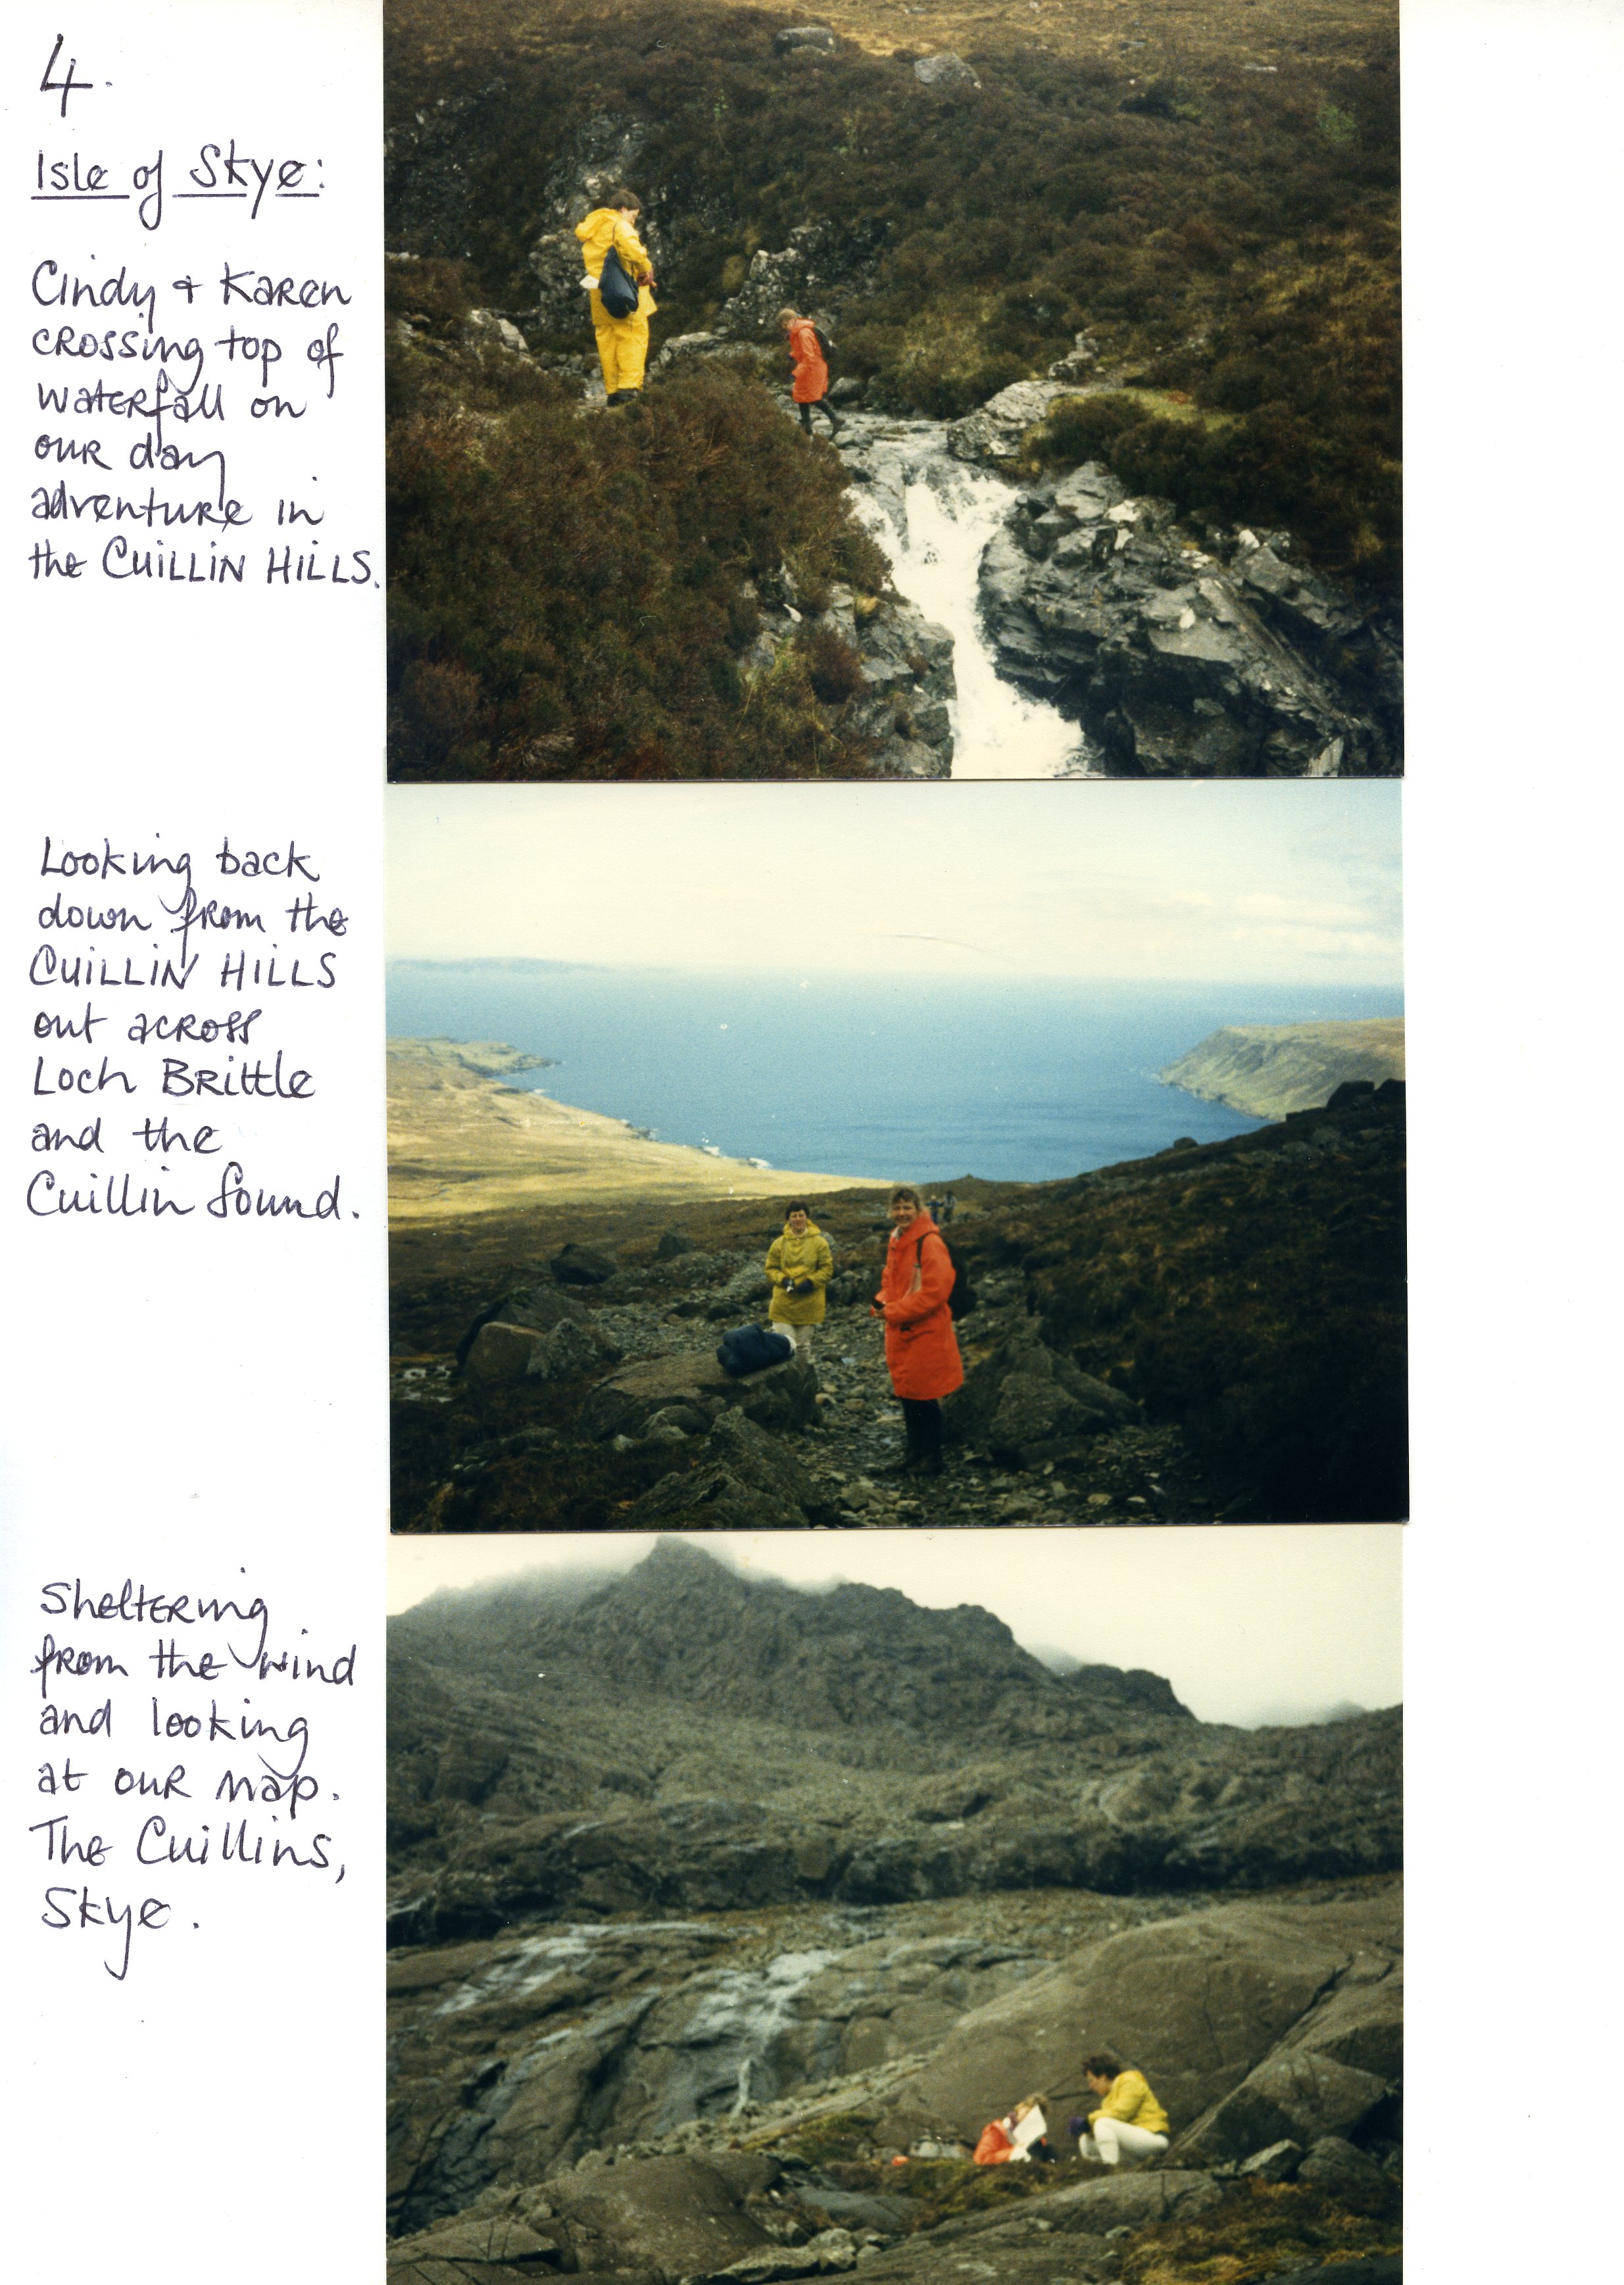 4.
Isle of Skye:
Cindy + Karen
crossing top of
waterfall on
our day
adventure in
the CUILLIN HILLS.
Looking back
down from the
CUILLIN HILLS
out across
Loch Brittle
and the
Cuillin Sound.
Sheltering
from the wind
and looking
at our map.
The Cuillins,
Skye.